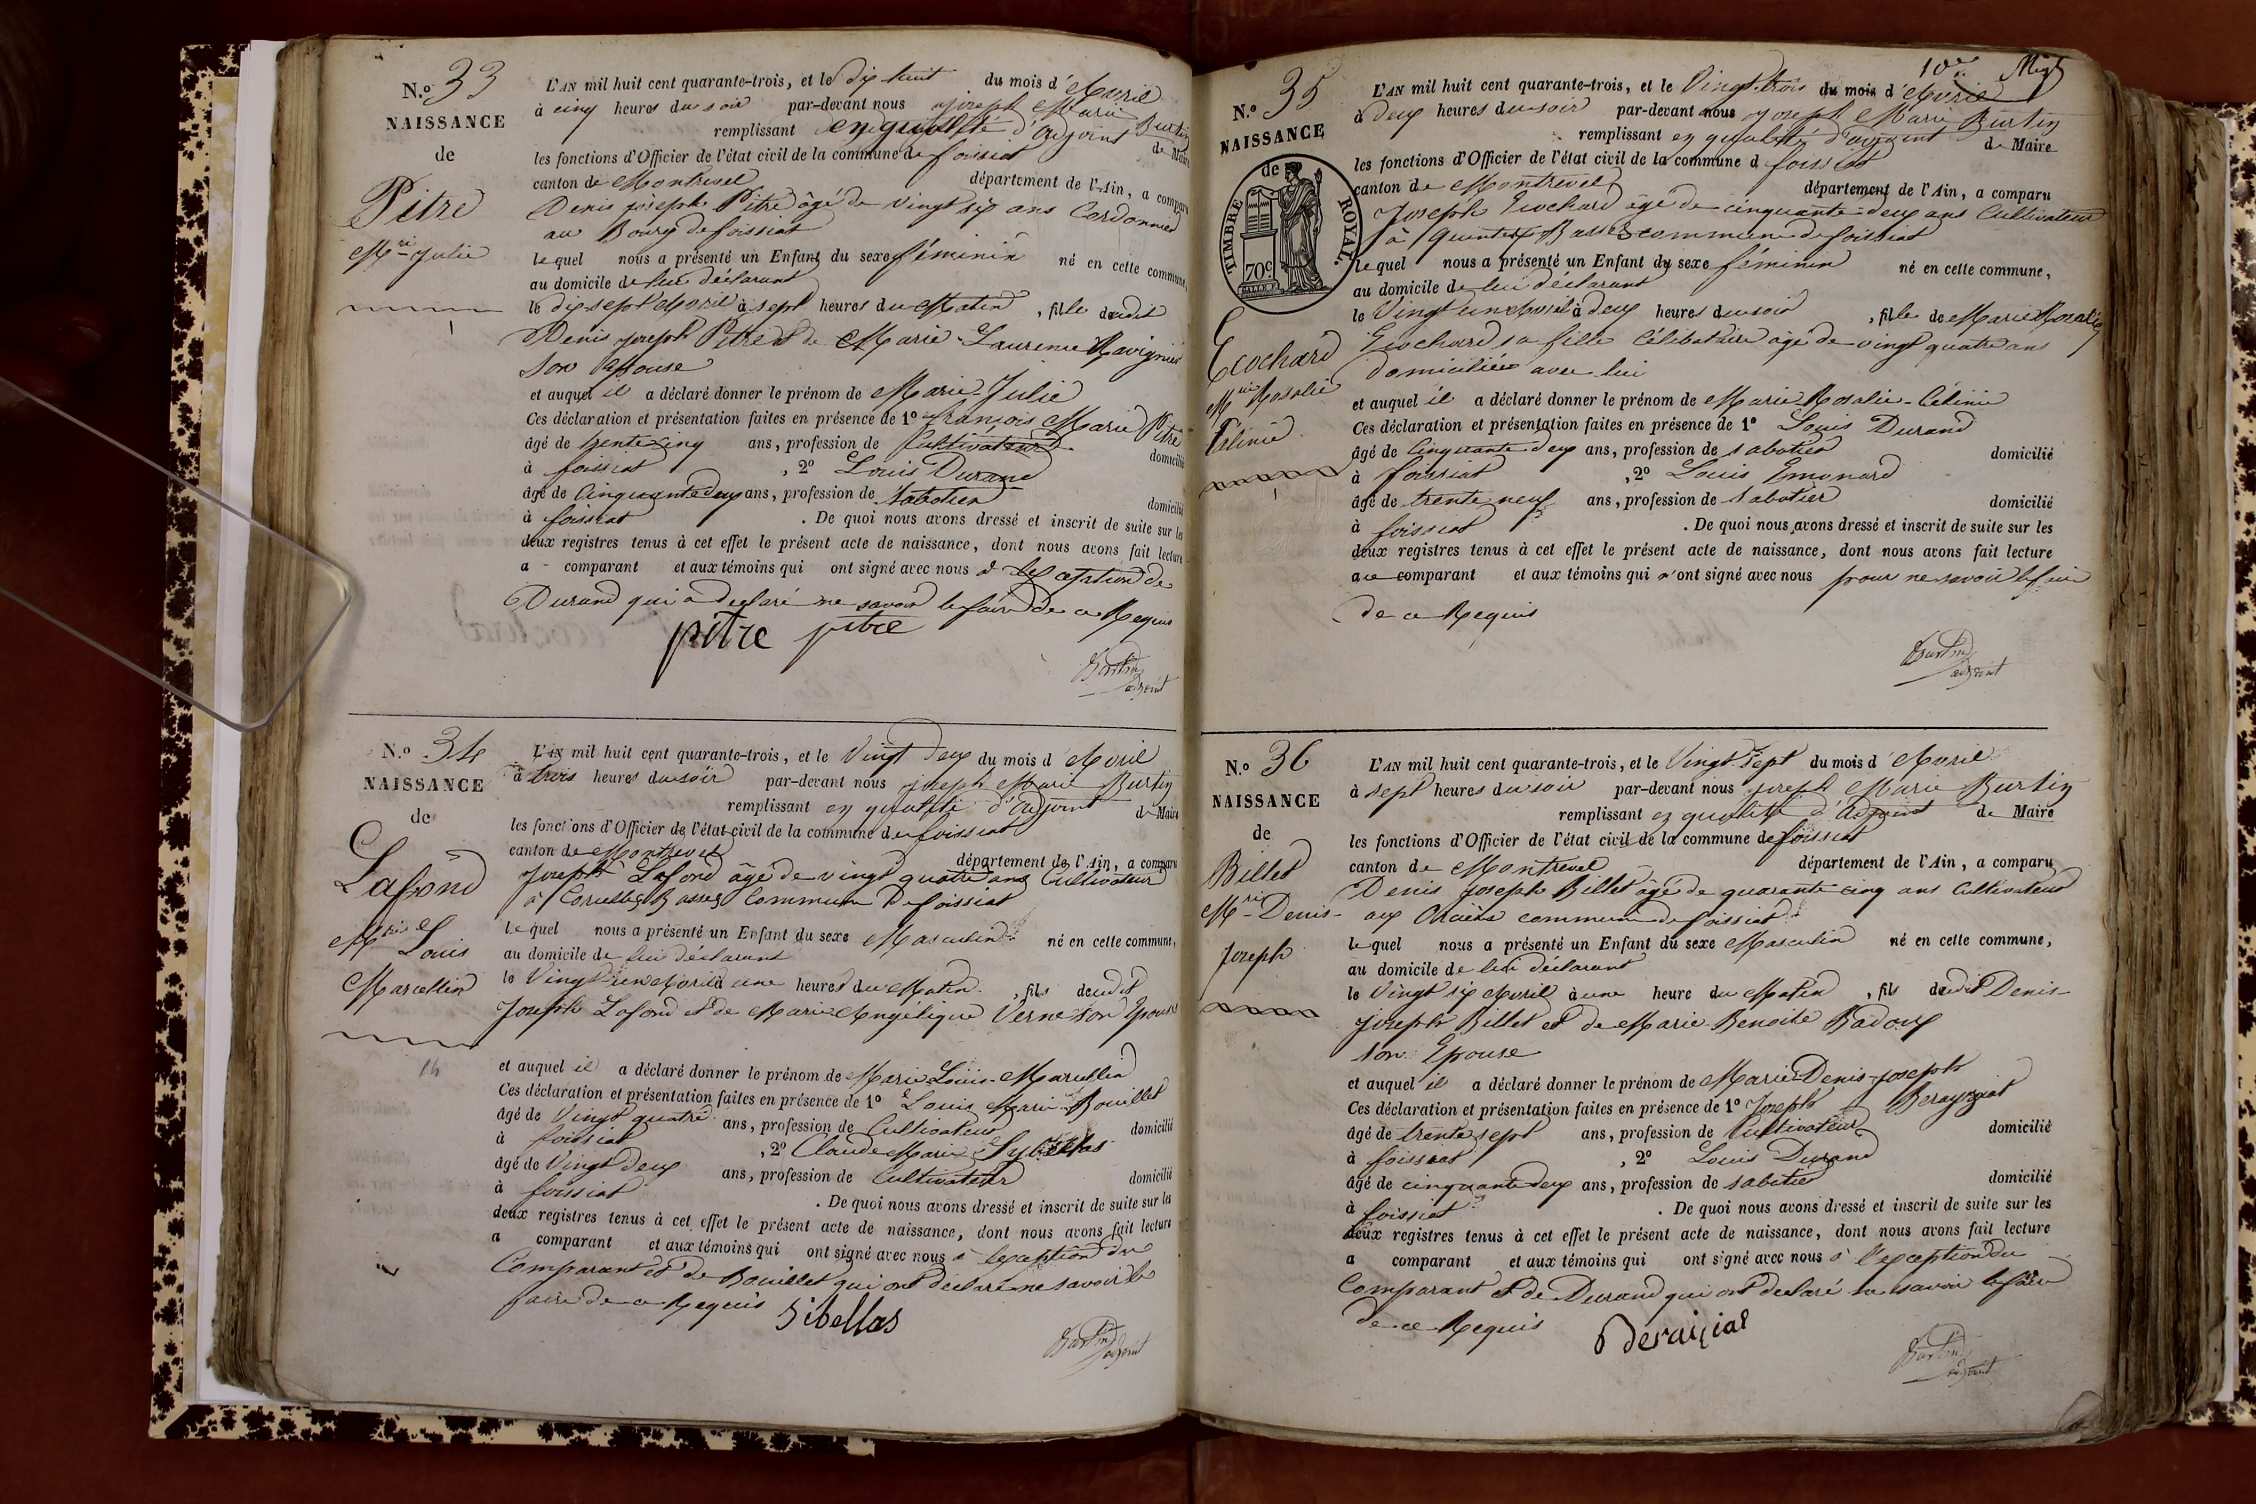 N.o 33
NAISSANCE
de
Pitre
M.rie Julie
L'AN mil huit cent quarante-trois, et le dix huit du mois d'Avril
à cinq heures du soir par-devant nous joseph Marie Burtin
remplissant en qualité d'adjoint de Maire
les fonctions d'Officier de l'état civil de la commune de foissiat
canton de Montrevel département de l'Ain, a comparu
Denis joseph Pitre âgé de vingt six ans Cordonnier
au Bourg de foissiat
lequel nous a présenté un Enfant du sexe féminin né en cette commune,
au domicile de lui déclarant
le dix sept Avril à sept heures du Matin, fille dudit
Denis joseph Pitre et de Marie Laurence Ravignier
son Epouse
et auquel il a déclaré donner le prénom de Marie Julie
Ces déclaration et présentation faites en présence de 1o françois Marie Pitre
âgé de trente cinq ans, profession de Cultivateur domicilié
à foissiat, 2o Louis Durand
âgé de Cinquante deux ans, profession de sabotier domicilié
à foissiat. De quoi nous avons dressé et inscrit de suite sur les
deux registres tenus à cet effet le présent acte de naissance, dont nous avons fait lecture
a comparant et aux témoins qui ont signé avec nous de
Durand qui a declaré ne savoir le faire de ce Requis
pitre pitre
Burtin
adjoint
N.o 34
NAISSANCE
de
Lafond
M.rie Louis
Marcellin
14
L'AN mil huit cent quarante-trois, et le Vingt deux du mois d'Avril
à trois heures du soir par-devant nous joseph Marie Burtin
remplissant en qualité d'adjoint de Maire
les fonctions d'Officier de l'état civil de la commune de foissiat
canton de Montrevel département de l'Ain, a comparu
Joseph Lafond âgé de vingt quatre ans Cultivateur
à Basses Commune de foissiat
lequel nous a présenté un Enfant du sexe Masculin né en cette commune,
au domicile de lui déclarant
le Vingt un Avril à une heures du Matin, fils dudit
Joseph Lafond et de Marie Angélique Verne son Epouse
et auquel il a déclaré donner le prénom de Marie Louis-Marcellin
Ces déclaration et présentation faites en présence de 1o Louis Marie Bouillet
âgé de Vingt quatre ans, profession de Cultivateur domicilié
à foissiat, 2o Claude Marie Sybellas
âgé de Vingt deux ans, profession de Cultivateur domicilié
à foissiat. De quoi nous avons dressé et inscrit de suite sur les
deux registres tenus à cet effet le présent acte de naissance, dont nous avons fait lecture
a comparant et aux témoins qui ont signé avec nous à l'exception du
Comparant et de Bouillet qui ont déclaré ne savoir le
faire de ce Requis
Sibellas
Burtin
adjoint
10e
N.o 35
NAISSANCE
de
TIMBRE ROYAL.
70c
Ecochard
M.rie Rosalie
Célinie
L'AN mil huit cent quarante-trois, et le Vingt-trois du mois d'Avril
à deux heures du soir par-devant nous joseph Marie Burtin
remplissant en qualité d'adjoint de Maire
les fonctions d'Officier de l'état civil de la commune d foissiat
canton de Montrevel département de l'Ain, a comparu
Joseph Ecochard âgé de cinquante-deux ans Cultivateur
à Basses commune de foissiat
lequel nous a présenté un Enfant du sexe féminin né en cette commune,
au domicile de lui déclarant
le Vingt un Avril à deux heures du soir, fille de Marie Rosalie
Ecochard sa fille Célibataire âgé de vingt quatre ans
domiciliée avec lui
et auquel il a déclaré donner le prénom de Marie-Rosalie-Célinie
Ces déclaration et présentation faites en présence de 1o Louis Durand
âgé de Cinquante deux ans, profession de sabotier domicilié
à foissiat, 2o Louis Emonard
âgé de trente neuf ans, profession de sabotier domicilié
à foissiat. De quoi nous avons dressé et inscrit de suite sur les
deux registres tenus à cet effet le présent acte de naissance, dont nous avons fait lecture
au comparant et aux témoins qui n'ont signé avec nous pour ne savoir le faire
de ce Requis
Burtin
adjoint
N.o 36
NAISSANCE
de
Billet
M.rie Denis-
Joseph
L'AN mil huit cent quarante-trois, et le Vingt Sept du mois d'Avril
à sept heures du soir par-devant nous joseph Marie Burtin
remplissant en qualité d'adjoint de Maire
les fonctions d'Officier de l'état civil de la commune de foissiat
canton de Montrevel département de l'Ain, a comparu
Denis Joseph Billet âgé de quarante-cinq ans Cultivateur
aux commune de foissiat
lequel nous a présenté un Enfant du sexe Masculin né en cette commune,
au domicile de lui déclarant
le Vingt six Avril à une heure du Matin, fils dudit Denis-
joseph Billet et de Marie Benoite Badoux
son Epouse
et auquel il a déclaré donner le prénom de Marie-Denis-joseph
Ces déclaration et présentation faites en présence de 1o Joseph Berayziat
âgé de trente sept ans, profession de Cultivateur domicilié
à foissiat, 2o Louis Durand
âgé de cinquante deux ans, profession de sabotier domicilié
à foissiat. De quoi nous avons dressé et inscrit de suite sur les
deux registres tenus à cet effet le présent acte de naissance, dont nous avons fait lecture
a comparant et aux témoins qui ont signé avec nous à l'exception du
Comparant et de Durand qui ont declaré ne savoir le faire
de ce Requis
Beraiziat
Burtin
adjoint